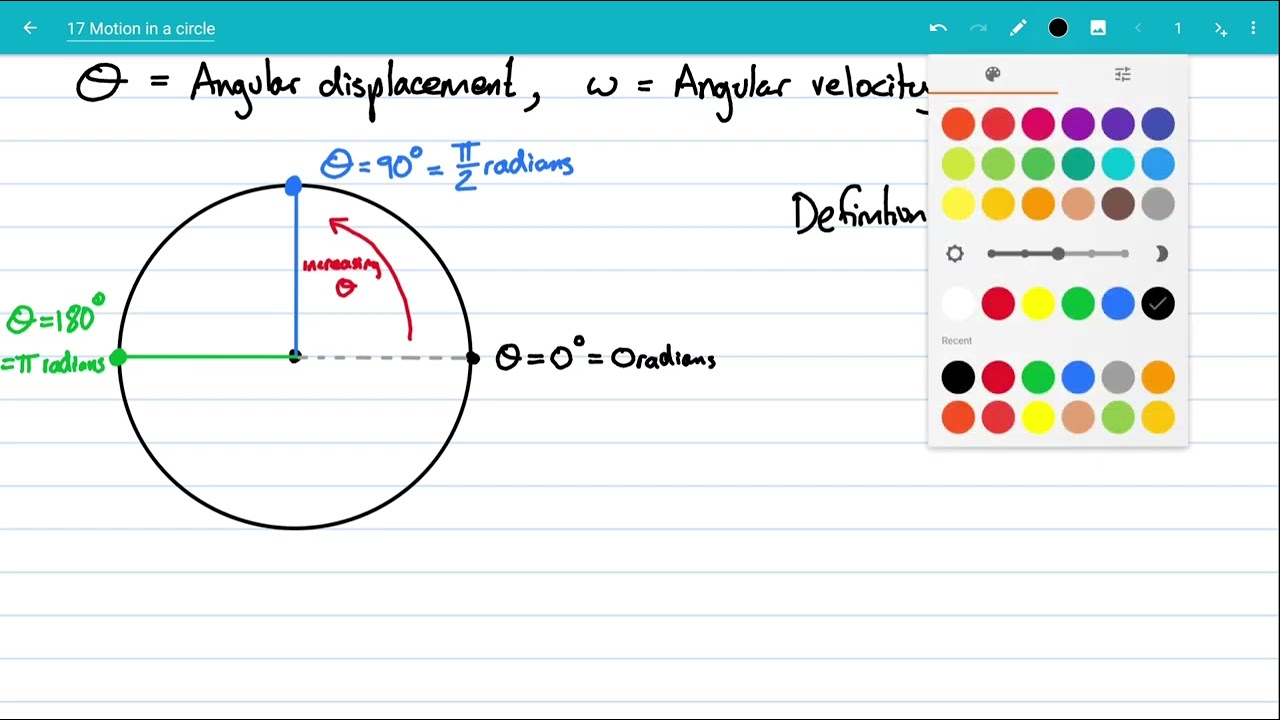 17 Motion in a circle
1
θ = Angular displacement, ω = Angular velocity
θ = 90° = π/2 radians
Definition
increasing
θ
θ = 180°
= π radians
θ = 0° = 0 radians
Recent